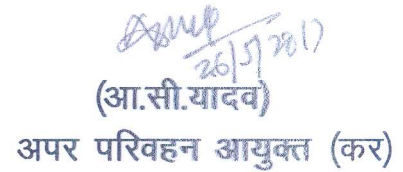 26/5/2017
(आ.सी.यादव)
अपर परिवहन आयुक्त (कर)